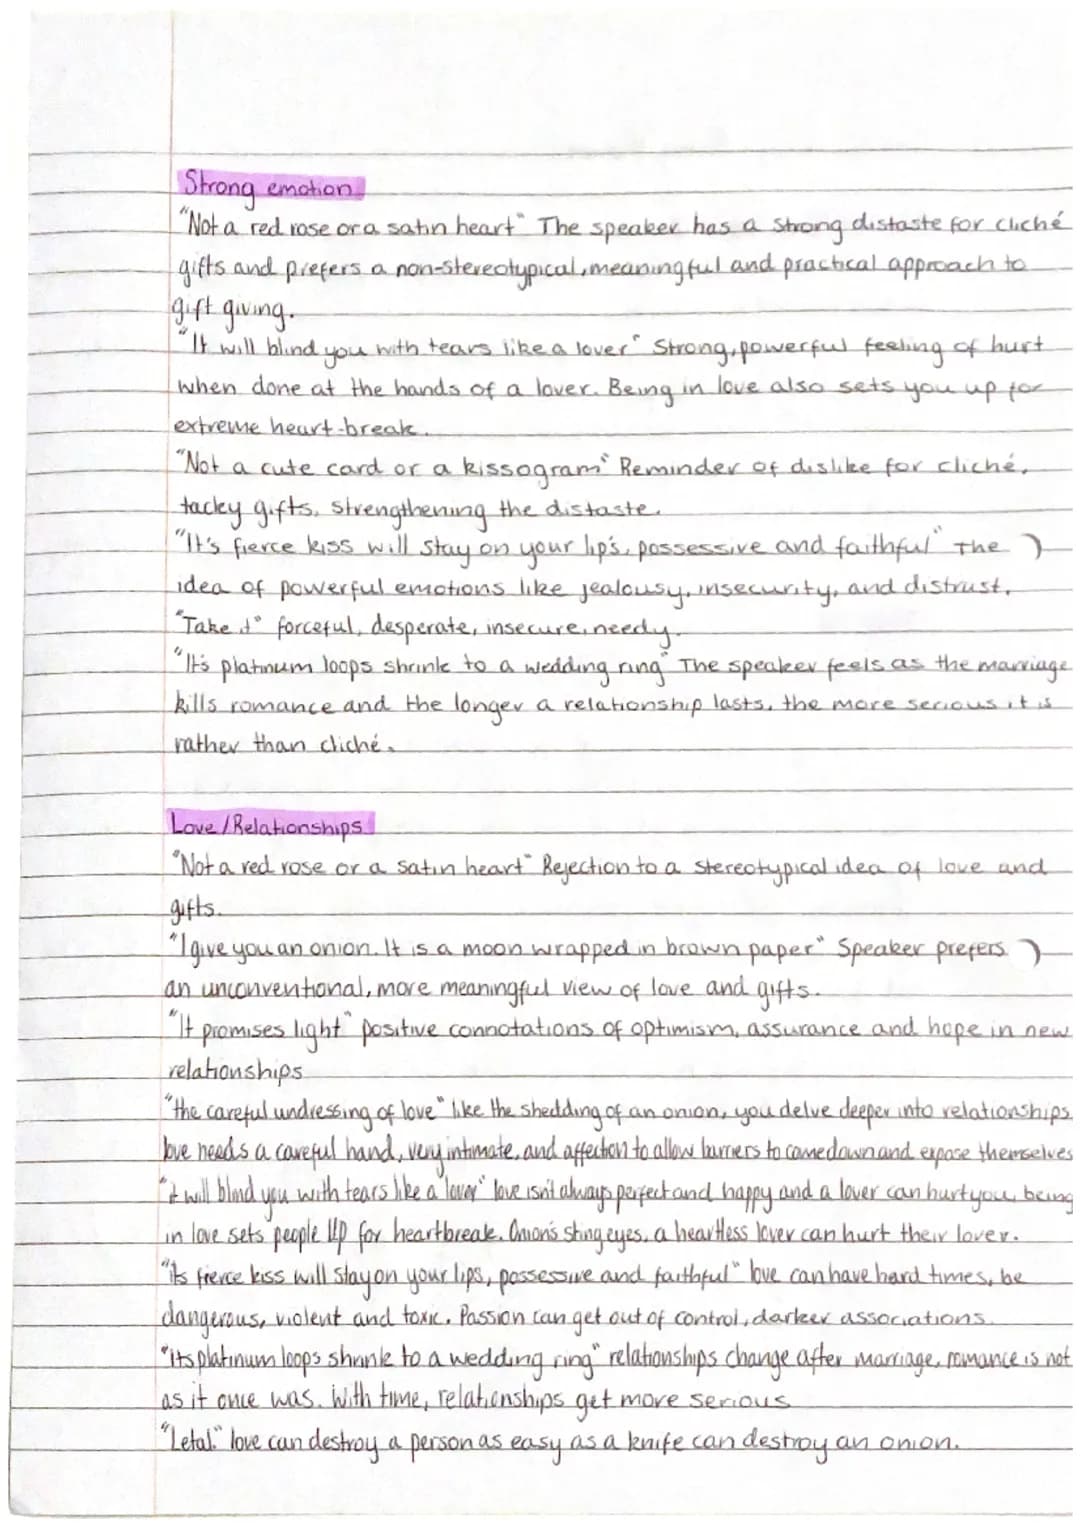 Strong emotion
"Not a red rose or a satin heart" The speaker has a strong distaste for cliché
gifts and prefers a non-stereotypical, meaningful and practical approach to
gift giving.
"It will blind you with tears like a lover" Strong, powerful feeling of hurt
when done at the hands of a lover. Being in love also sets you up for
extreme heart-break.
"Not a cute card or a kissogram" Reminder of dislike for cliché,
tacky gifts, strengthening the distaste.
"It's fierce kiss will stay on your lip's, possessive and faithful" The
idea of powerful emotions like jealousy, insecurity, and distrust.
"Take it" forceful, desperate, insecure, needy.
"It's platinum loops shrink to a wedding ring" The speaker feels as the marriage
kills romance and the longer a relationship lasts, the more serious it is
rather than cliché.
Love/Relationships
"Not a red rose or a satin heart" Rejection to a stereotypical idea of love and
gifts.
"I give you an onion. It is a moon wrapped in brown paper" Speaker prefers
an unconventional, more meaningful view of love and gifts.
"It promises light" positive connotations of optimism, assurance and hope in new
relationships
"the careful undressing of love" like the shedding of an onion, you delve deeper into relationships.
love needs a careful hand, very intimate, and affection to allow barriers to come down and expose themselves
"it will blind you with tears like a lover" love isn't always perfect and happy and a lover can hurt you, being
in love sets people up for heartbreak. Onion's sting eyes, a heartless lover can hurt their lover.
"its fierce kiss will stay on your lips, possessive and faithful" love can have hard times, be
dangerous, violent and toxic. Passion can get out of control, darker associations.
"Its platinum loops shrink to a wedding ring" relationships change after marriage, romance is not
as it once was. With time, relationships get more serious
"Letal." love can destroy a person as easy as a knife can destroy an onion.